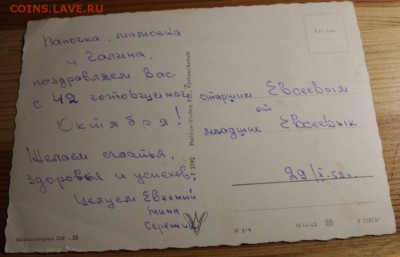 COINS.LAVE.RU
Папочка, мамочка
и Галина,
поздравляем Вас
с 42 готовщиной
Октября!
Желаем счастья,
здоровья и успехов.
Целуем Евгений
Нина
Сережик
старшим Евсеевым
от
младших Евсеевых
29/X.59г.